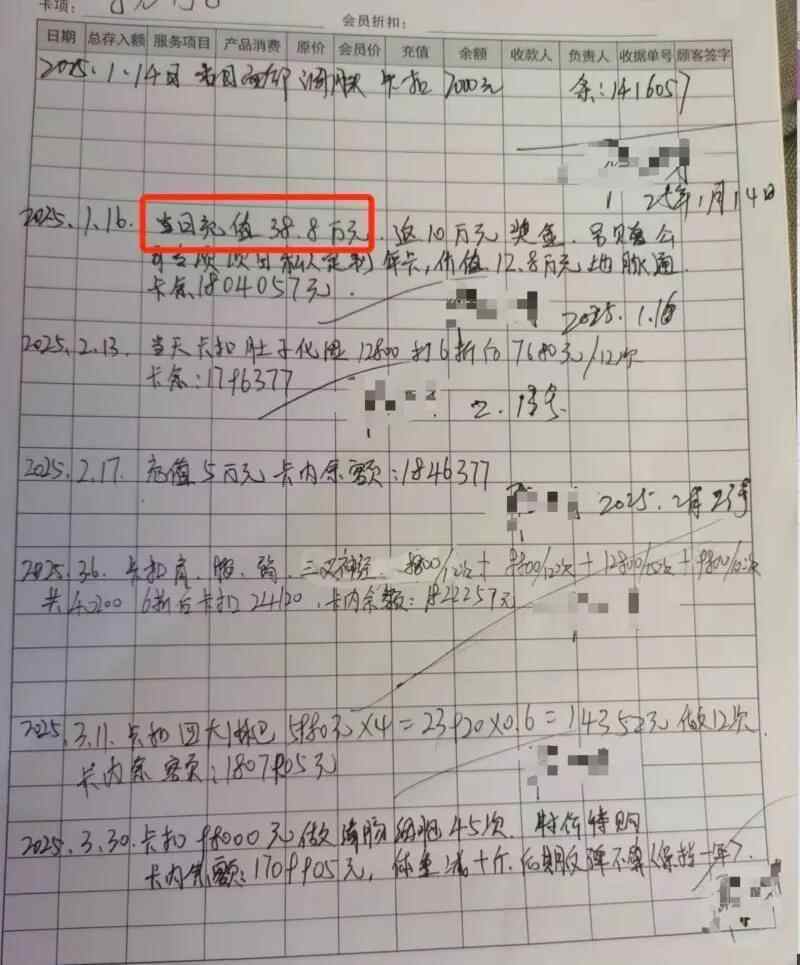 卡项:
会员折扣:
日期 总存入额 服务项目 产品消费 原价 会员价 充值 余额 收款人 负责人 收据单号 顾客签字
2025.1.14日 当日 调肤 卡扣 7000元 余:1416057
25年1月14日
2025.1.16. 当日充值 38.8万元. 返10万元 奖金.
年卡,价值12.8万元 地脉通
卡余1804057元.
2025.1.16
2025.2.13. 当天卡扣肚子化湿 12800 打6折后 7680元/12次
卡余:1796377
2.13号
2025.2.17. 充值5万元 卡内余额:1846377
2025.2月23号
2025.3.6. 卡扣肩、腿、三叉神经. 9800/12次+9800/12次+12800/12次+9800/12次
共40200 6折后卡扣24120.卡内余额:1822257元
2025.3.11.卡扣四大淋巴5980元×4=23920×0.6=14352元 做12次
卡内余额:1807905元
2025.3.30.卡扣98000元做 45次. 特价特购
卡内余额:1709905元, 体重减十斤.后期反弹不算(保持一年).